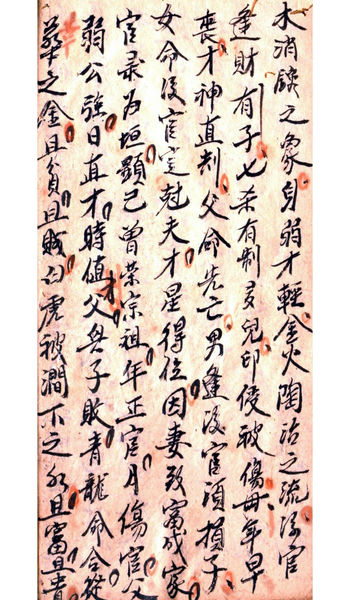 木消鎔之象身弱才輕金火陶冶之流淂官
逢財有子七杀有制多兒印綬被傷毋年早
喪才神直剋父命先亡男逢没官須損子
女命没官定尅夫才星得位因妻致富成家
官彔为垣顕已曾荣宗祖年正官月傷官父
弱公強日直才時值才父兴子敗青龍命合從
革之金且貧且賎白虎被澗下之水且富且貴